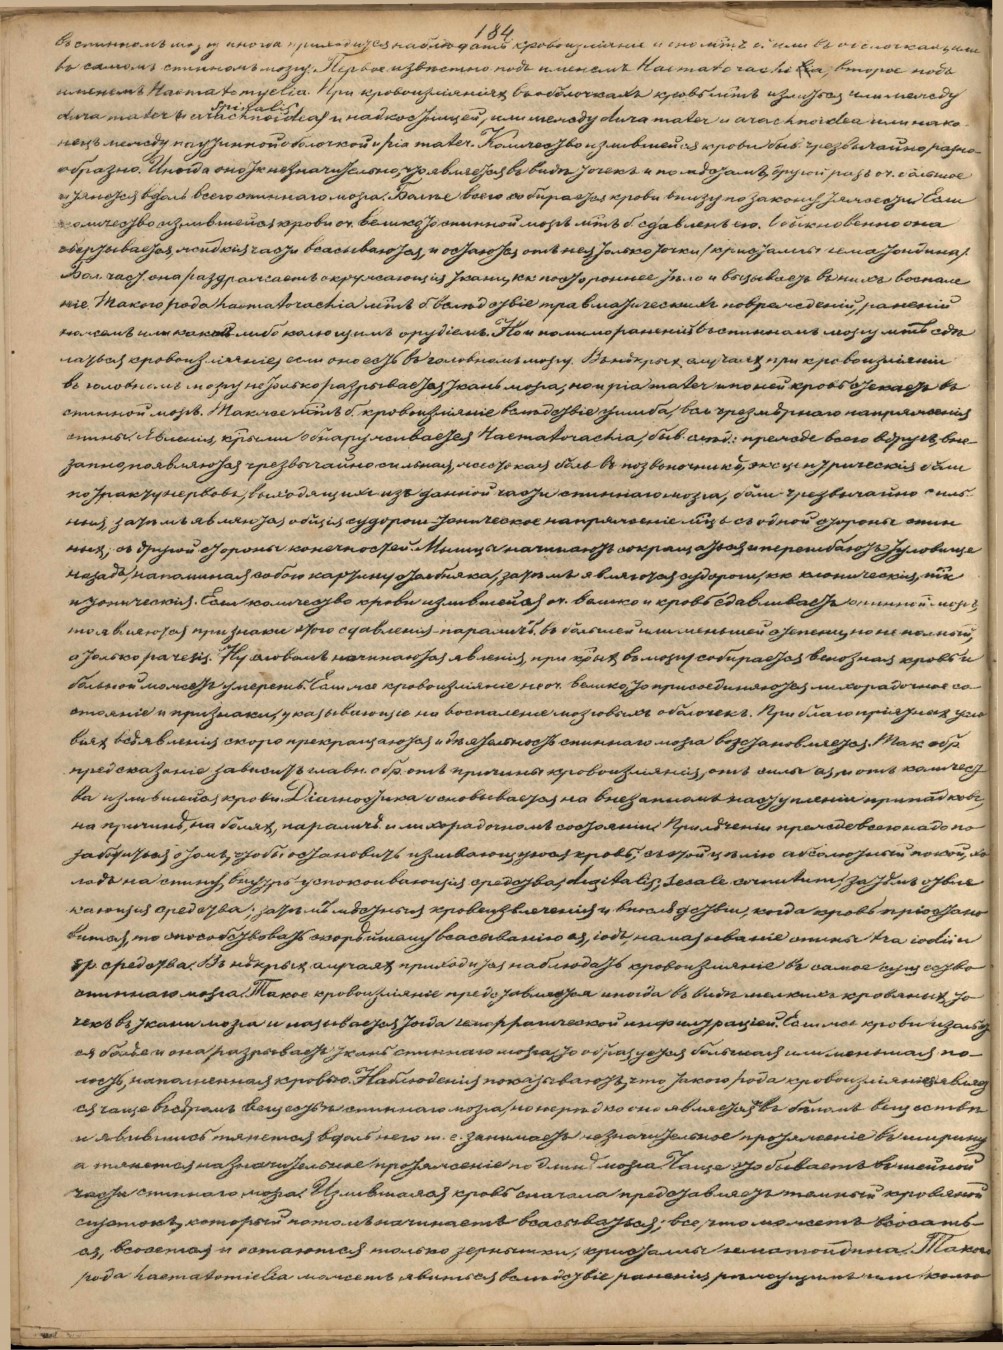 184
въ спинномъ мозгу иногда приходится наблюдать кровоизліяніе и оно м. б. или въ оболочкахъ или
въ самомъ спинномъ мозгу. Первое извѣстно подъ именемъ Haematorachia, второе подъ
именемъ Haematomyelia. При кровоизліяніяхъ въ оболочкахъ кровь мтъ излиться или между
spinalis
dura mater и arachnoidea и надкостницей, или между dura mater и arachnoidea или нако-
нецъ между паутинной оболочкой и pia mater. Количество излившейся крови быв. чрезвычайно разно-
образно. Иногда оно незначительно, является въ видѣ точекъ и по мѣстамъ, другой разъ оч. большое
и тянется вдоль всего спиннаго мозга. Далѣе всего собирается крови внизу по закону тяжести. Если
количество излившейся крови оч. велико, то спинной мозгъ мтъ б. сдавленъ ею. Обыкновенно она
свертывается, жидкія части всасываются, и остаются отъ нея только точки (кристаллы гематоидина).
Бол. част. она раздражаетъ окружающія ткани, кк постороннее тѣло и вызываетъ въ нихъ воспале-
ніе. Такого рода haematorachia мтъ б. вслѣдствіе травматическихъ поврежденій, раненій
ножемъ или какимъ либо колющимъ орудіемъ. Но и помимо раненій въ спинномъ мозгу мтъ сдѣ-
латься кровоизліяніе, если оно есть въ головномъ мозгу. Въ нѣкрыхъ случаяхъ при кровоизліяніи
въ головномъ мозгу не только разрывается ткань мозга, но и pia mater и по ней кровь стекаетъ въ
спинной мозгъ. Также мтъ б. кровоизліяніе вслѣдствіе ушиба, всл. чрезмѣрнаго напряженія
спины. Явленія, крыми обнаруживается Haematorachia, быв. слѣд.: прежде всего вдругъ, вне-
запно, появляются чрезвычайно сильная, жестокая боль въ позвоночникѣ, эксцентрическія боли
по тракту нервовъ, выходящихъ изъ данной части спиннаго мозга, боли чрезвычайно силь-
ныя, затѣмъ являются общія судороги - тоническое напряженіе мышцъ съ одной стороны спин-
ныхъ, съ другой стороны конечностей. Мышцы начинаютъ сокращаться и перегибаютъ туловище
назадъ, напоминая собою картину столбняка, затѣмъ являются судороги, кк клоническія, тк
и тоническія. Если количество крови излившейся оч. велико и кровь сдавливаетъ спинной мозгъ,
то являются признаки этого сдавленія - параличъ въ большей или меньшей степени, но не полный,
а только paresis. Ну словомъ начинаются явленія, при крыхъ въ мозгу собирается венозная кровь и
больной можетъ умереть. Если же кровоизліяніе не оч. велико, то присоединяются лихорадочное со-
стояніе и признаки, указывающіе на воспаленіе мозговыхъ оболочекъ. При благопріятныхъ усло-
віяхъ всѣ явленія скоро прекращаются и дѣятельность спиннаго мозга возстановляется. Так. обр.
предсказаніе зависитъ главн. обр. отъ причины кровоизліянія, отъ силы ея, и отъ количест-
ва излившейся крови. Діагностика основывается на внезапномъ наступленіи припадковъ,
на причинѣ, на боляхъ, параличѣ и лихорадочномъ состояніи. При лѣченіи прежде всего надо по-
заботиться о томъ, чтобы остановить изливающуюся кровь; съ этой цѣлію абсолютный покой, хо-
лодъ на спину, внутрь успокоивающія средства, digitalis, secale cornutum, затѣмъ отвле-
кающія средства; затѣмъ мѣстныя кровеизвлеченія и впослѣдствіи, когда кровь пріостано-
вится, то способствовать скорѣйшему всасыванію ея, іодъ, намазываніе спины tra iodii и
др. средства. Въ нѣкрыхъ случаяхъ приходится наблюдать кровоизліяніе въ самое существо
спиннаго мозга. Такое кровоизліяніе представляется иногда въ видѣ мелкихъ кровяныхъ то-
чекъ въ ткани мозга и называется тогда геморрагической инфильтраціей. Если же крови излилось
больше и она разрываетъ ткань спиннаго мозга, то образуется большая или меньшая по-
лость, наполненная кровью. Наблюденія показываютъ, что такого рода кровоизліянія являют-
ся чаще въ сѣромъ веществѣ спиннаго мозга, но нерѣдко оно является въ бѣломъ веществѣ
и явившись тянется вдоль него т. е. занимаетъ незначительное протяженіе въ ширину
а тянется на значительное протяженіе по длинѣ мозга. Чаще это бываетъ въ шейной
части спиннаго мозга. Излившаяся кровь сначала представляетъ темный кровяной
сгустокъ, который потомъ начинаетъ всасываться; все, что можетъ всосать-
ся, всосется и остаются только зернышки, кристаллы гематоидина. Такого
рода haematomielia можетъ явиться вслѣдствіе раненія режущимъ или колю-